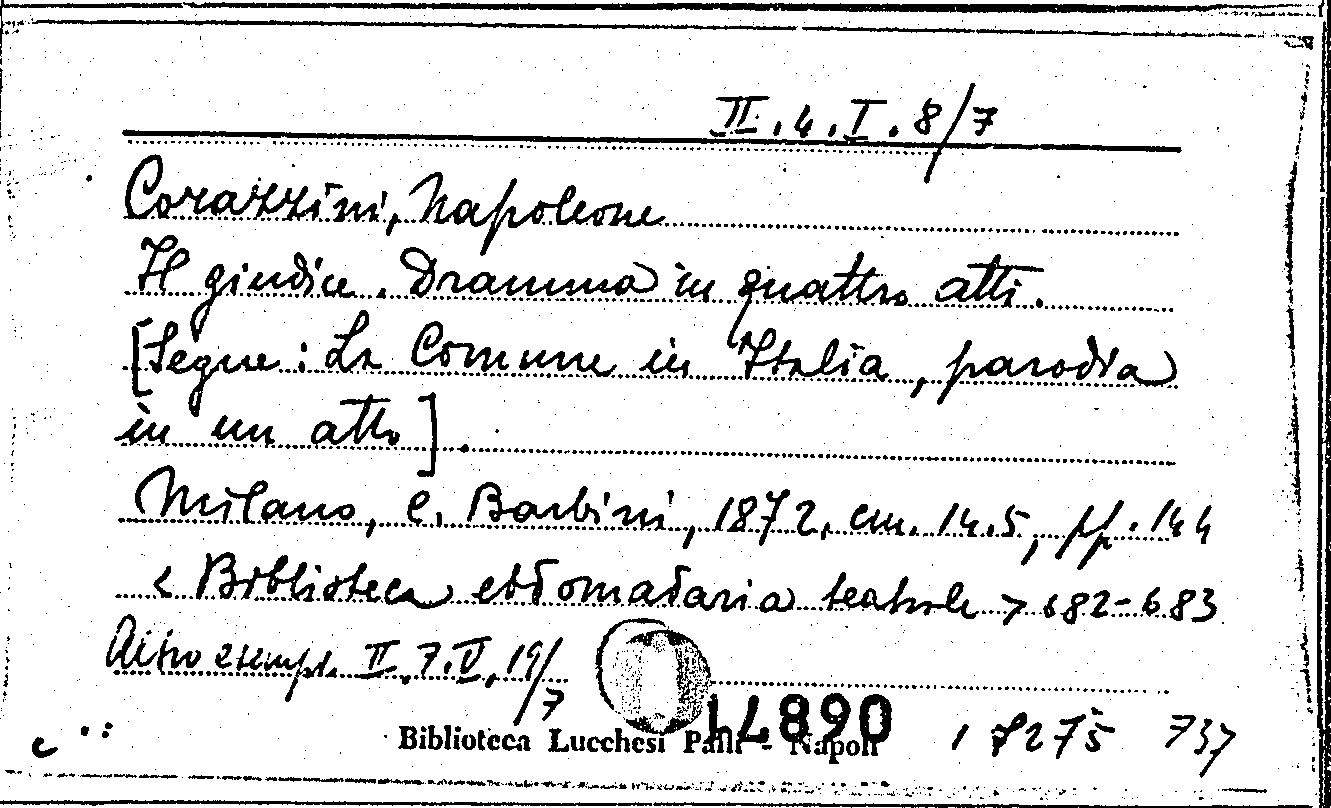 II.4.I.8/7
Corazzini, Napoleone
Il giudice. Dramma in quattro atti.
[Segue: La Comune in Italia, parodia
in un atto].
Milano, C. Barbini, 1872, cm. 14.5, pp. 144
< Biblioteca ebdomadaria teatrale > 682-683
Altro esempl. II.7.V.19/7
14890
Biblioteca Lucchesi Palli - Napoli
737